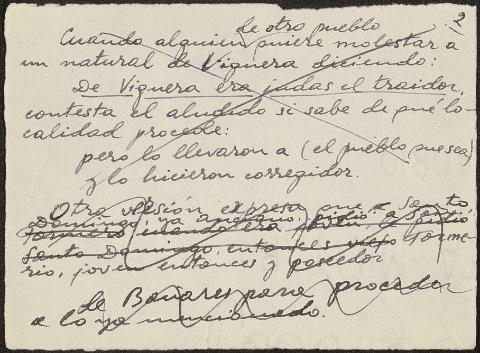 2
de otro pueblo
Cuando alguien quiere molestar a
un natural de Viguera diciendo:
De Viguera era judas el traidor,
contesta el aludido si sabe de qué lo-
calidad procede:
pero lo llevaron a (el pueblo que sea)
y lo hicieron corregidor.
Otra versión expresa que a Santo
Domingo, ya anciano, pidió a San
Santo Domingo, entonces viejo
rio, joven entonces y pecador
de Bañares para proceder
a lo ya mencionado.